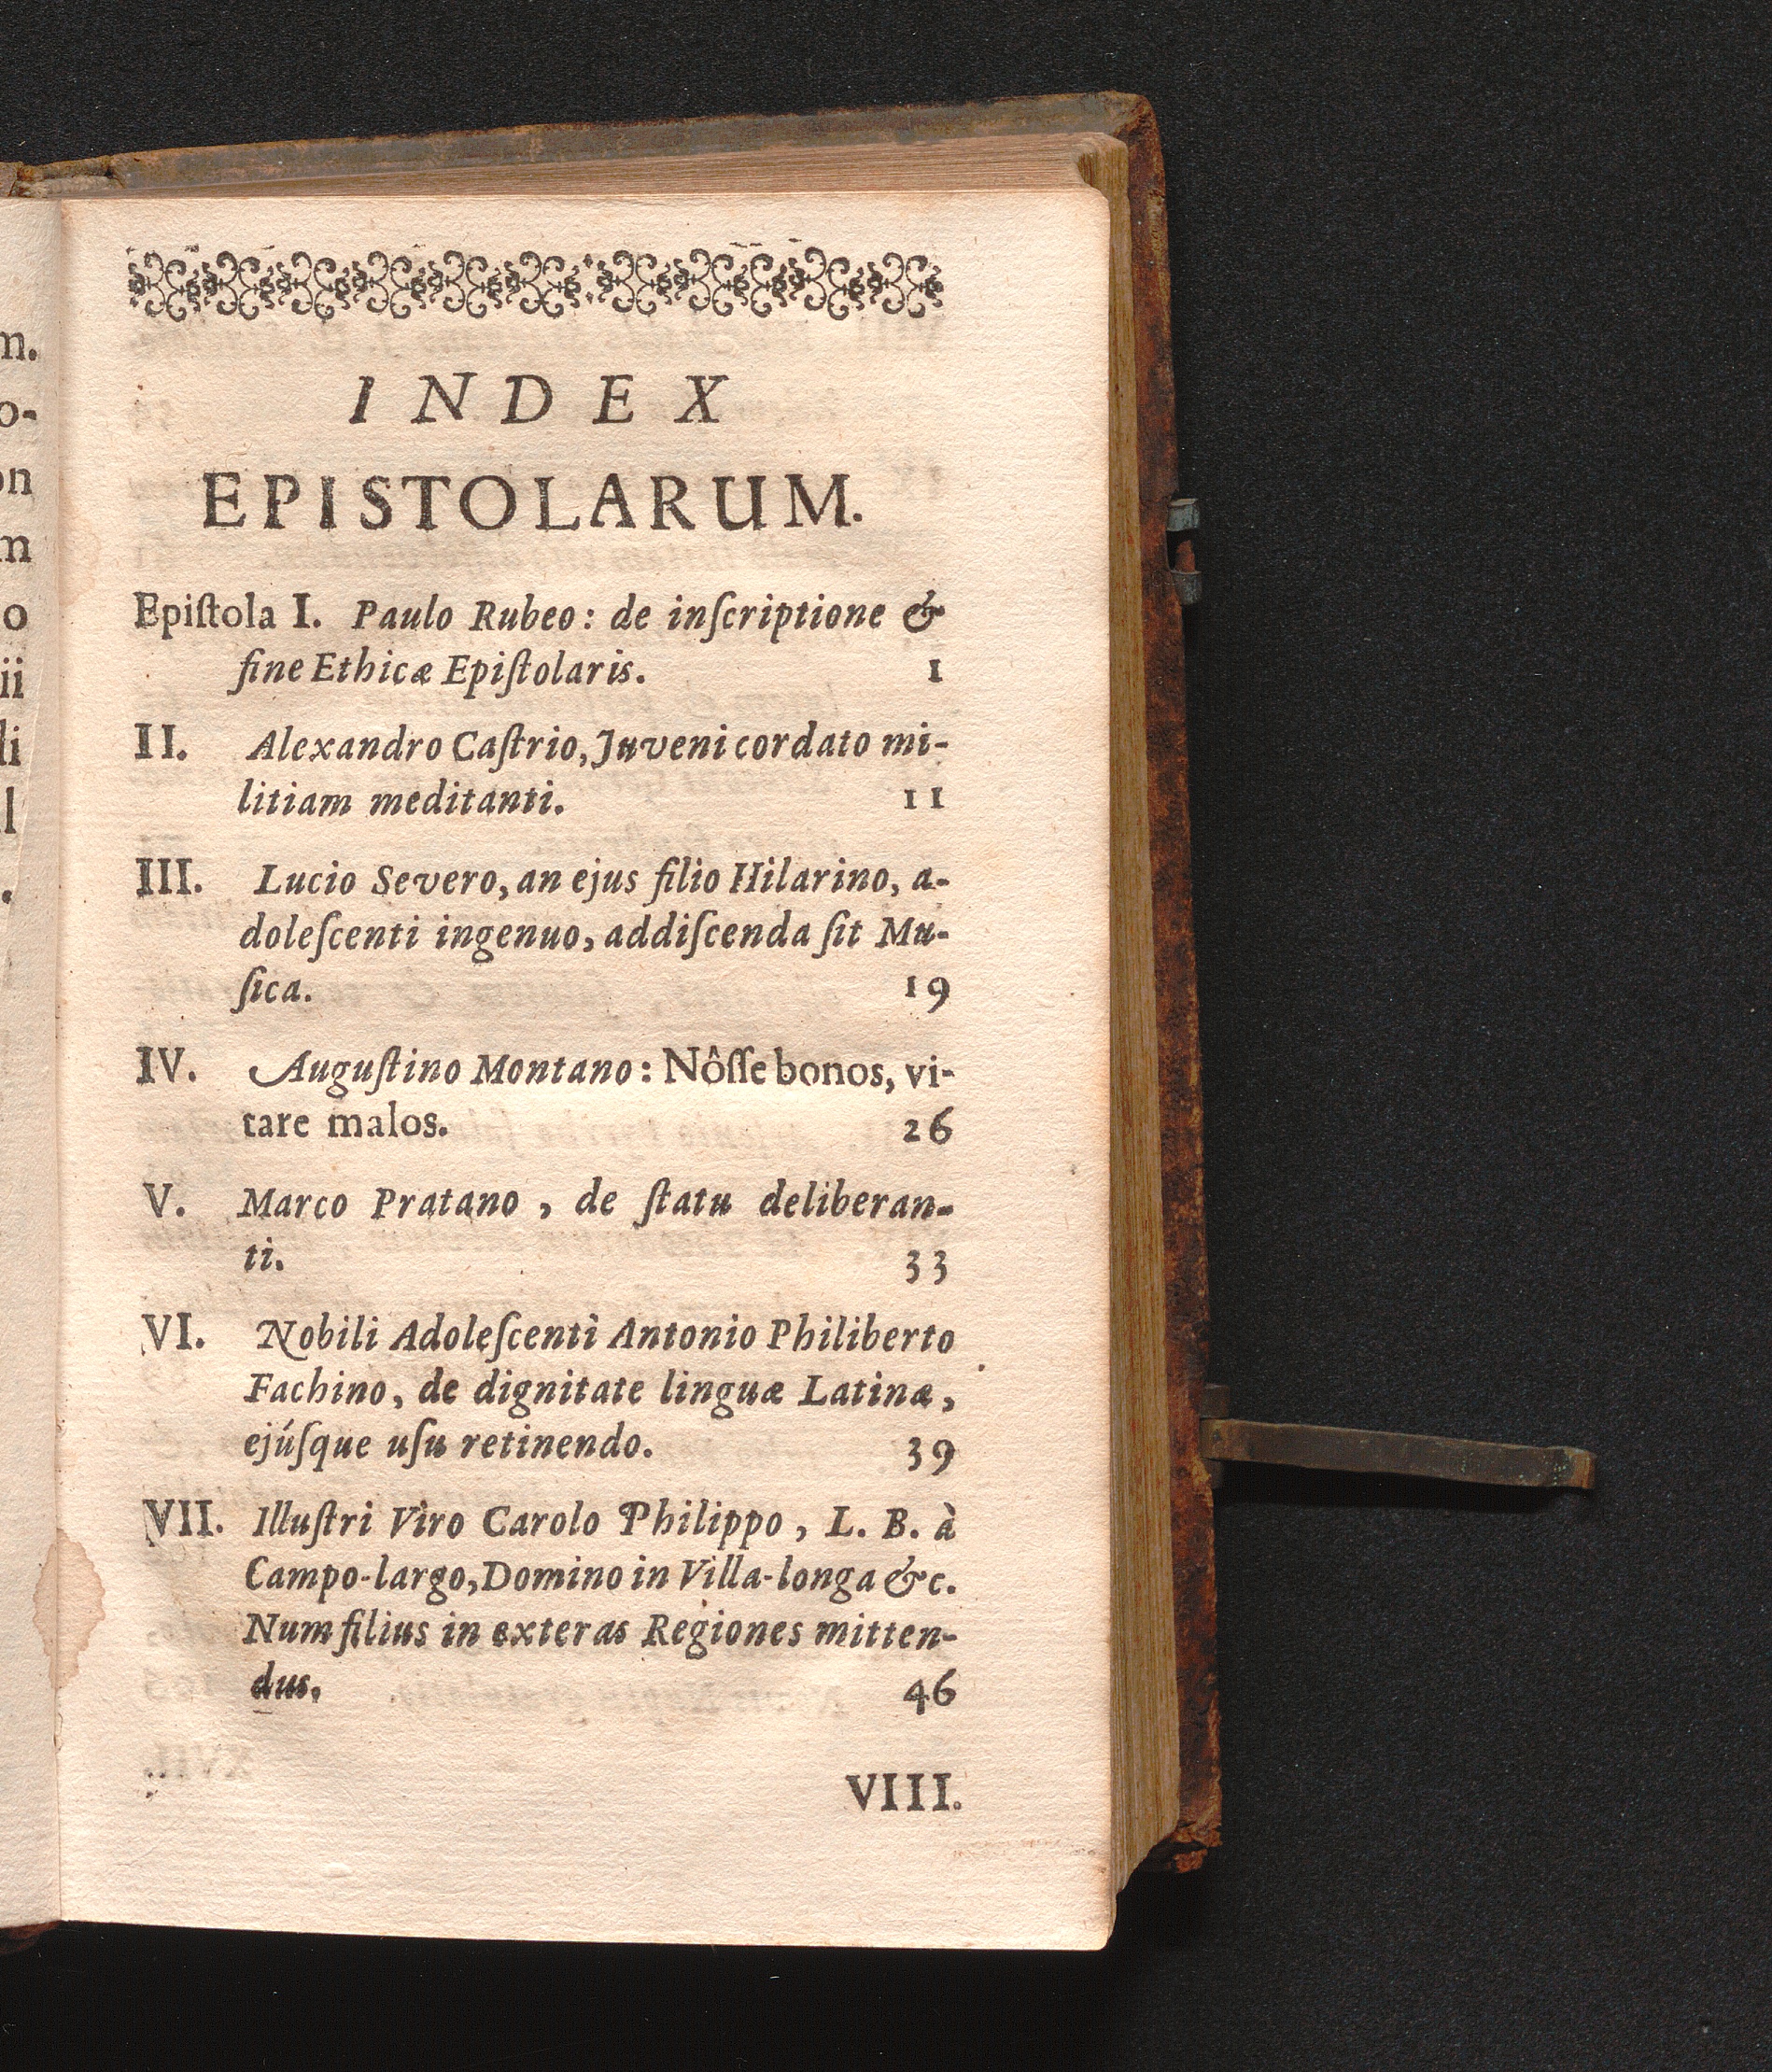 INDEX
EPISTOLARUM.
Epiſtola I. Paulo Rubeo: de inſcriptione &
fine Ethicæ Epiſtolaris. 1
II. Alexandro Caſtrio, Juveni cordato mi-
litiam meditanti. 11
III. Lucio Severo, an ejus filio Hilarino, a-
doleſcenti ingenuo, addiſcenda ſit Mu-
ſica. 19
IV. Auguſtino Montano: Nôſſe bonos, vi-
tare malos. 26
V. Marco Pratano, de ſtatu deliberan-
ti. 33
VI. Nobili Adoleſcenti Antonio Philiberto
Fachino, de dignitate linguæ Latinæ,
ejúſque uſu retinendo. 39
VII. Illuſtri Viro Carolo Philippo, L. B. à
Campo-largo, Domino in Villa-longa &c.
Num filius in exteras Regiones mitten-
dus. 46
VIII.